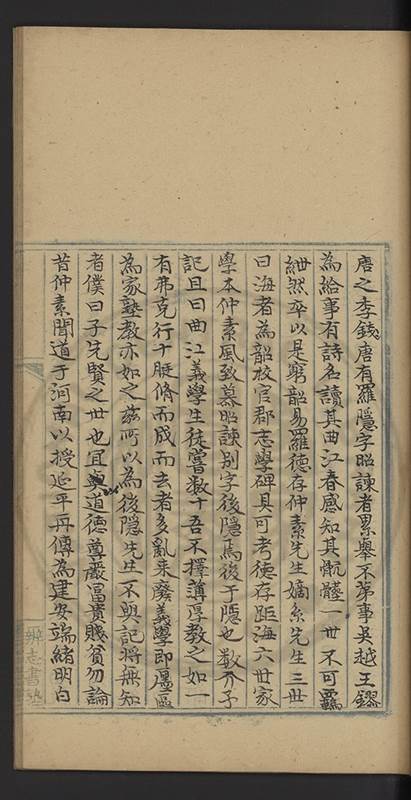 唐之季錢唐有羅隱字昭諫者累舉不第事吳越王鏐
為給事有詩名讀其曲江春感知其骯髒一世不可羈
紲然卒以是窮韶易羅德存仲素先生嫡系先生三世
曰海者為韶校官郡志學碑具可考德存距海六世家
學本仲素風致慕昭諫別字後隱焉後于隱也數介子
記且曰曲江義學生徒嘗數十吾不擇薄厚教之如一
有弗克行十脡脩而成而去者多亂來廢義學即廛區
為家塾教亦如之茲所以為後隱先生一不與記將無知
者僕曰子先賢之世也宜與道德尊嚴富貴賤貧勿論
昔仲素聞道于河南以授延平再傳為建安端緒明白
辨志書塾